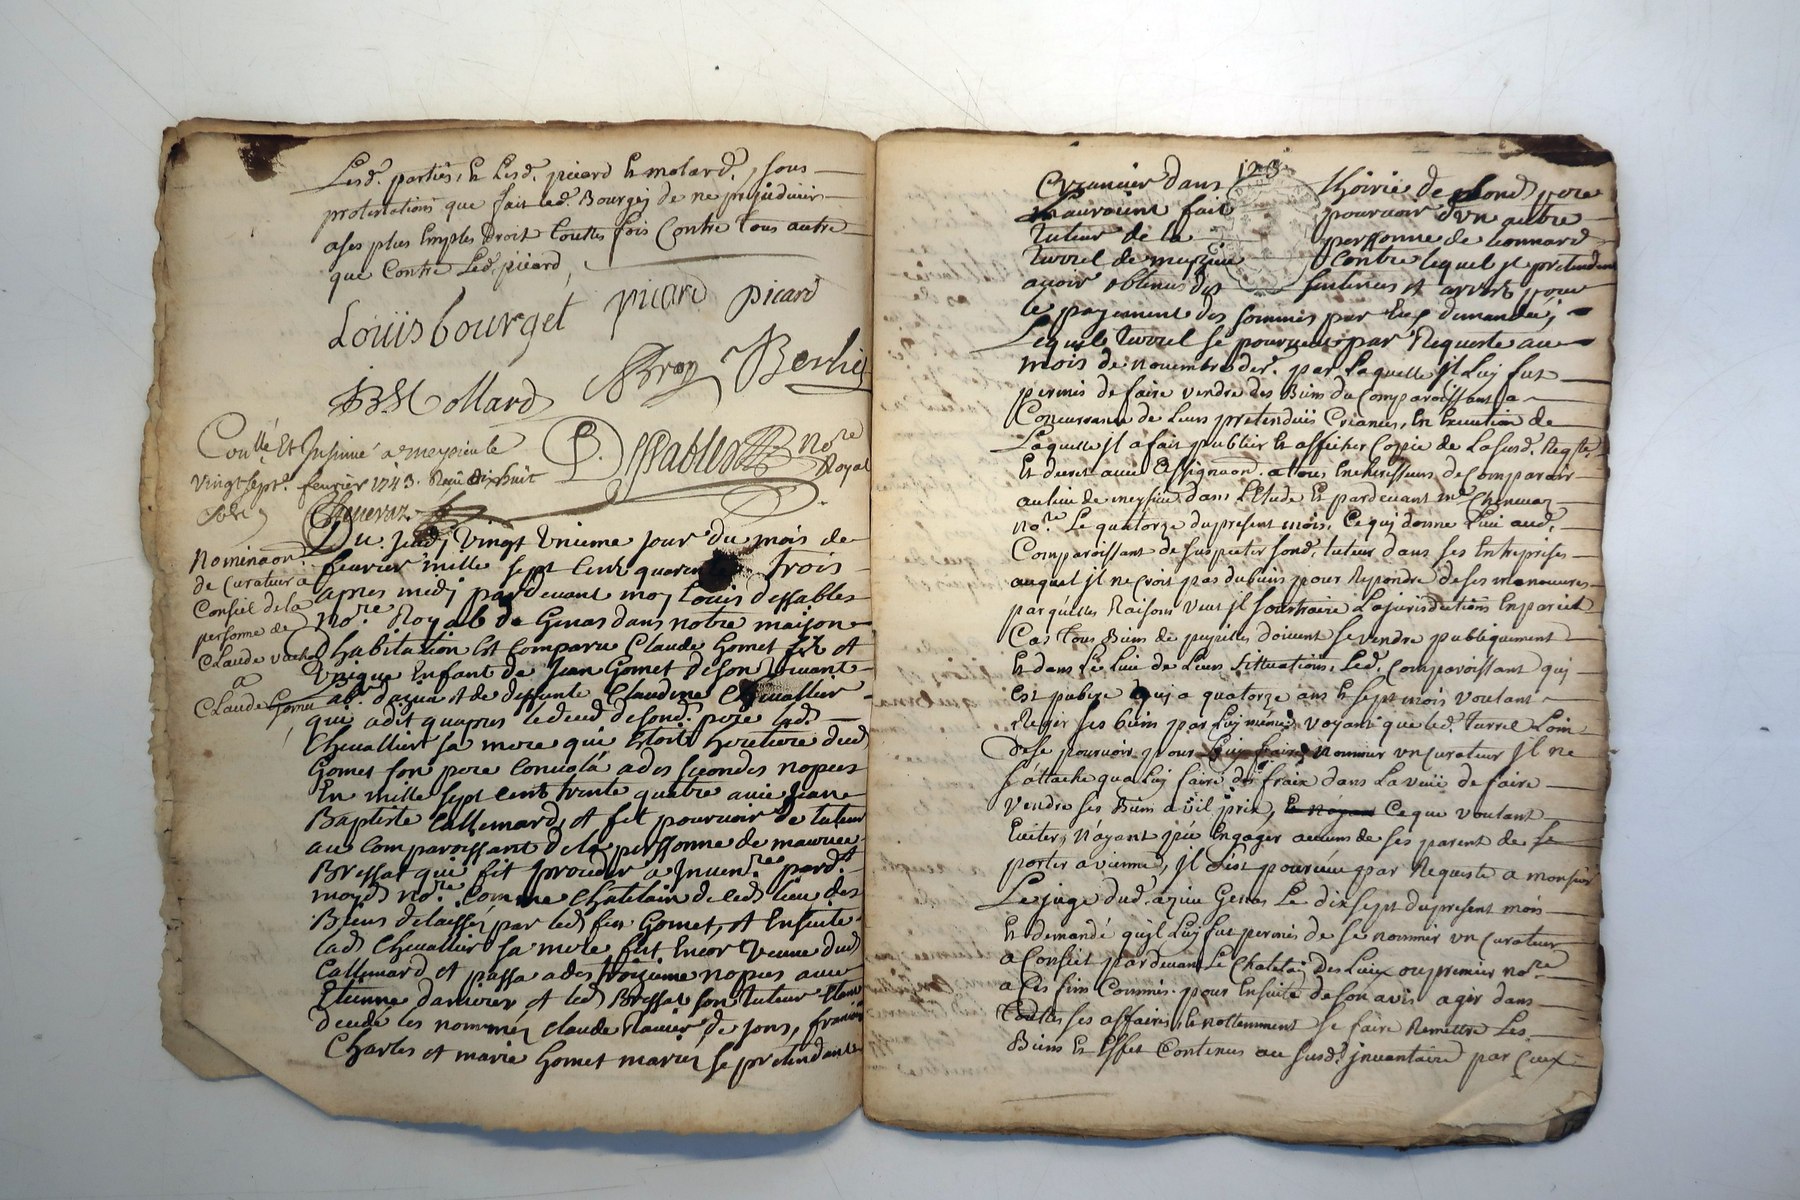 Lesd. parties, & Lesd. picard & molard, sous
protestations que fait led. Bourgey de ne prejudicier
a ses plus emples Droit touttes fois Contre tous autre
que Contre Led. picard,
Louis bourget picard picard
Mollard Bron Berlie
Dessables nore Royal
Con.llé Et Insinué a meyzieu le
vingt sept.e fevrier 1743. Reçu dix huit
sols
Chenevaz
Nominaon.
de Curateur a
Conseil de la
personne de
Claude
a
Claude Gomet
Du Jeudy vingt unieme Jour du mois de
fevrier mille sept cent quarante trois
apres midy pardevant moy Louis dessables
no.re Royal de Genas dans notre maison
D'habitation Est comparu Claude Gomet fils et
Unique Enfant de Jean Gomet de son vivant
hab. dazieu et de deffunte Claudine Chevallier
qui a dit quapres le deced de sond. pere lad.
Chevallier sa mere qui Etoit heritiere dud.
Gomet son pere Convola a des secondes nopces
En mille sept cent trente quatre avec Jean
Baptiste Callemard, et fit pourvoir de tuteur
au comparoissant de la personne de maurice
Bressat qui fit proceder a Inven.re pard.t
moyd. no.re comme Chatelain dud. lieu des
Biens delaissés par led. feu Gomet, et Ensuite
lad. Chevallier sa mere fut Encor veuve dud.
Callemard et passa a des troizieme nopces avec
Etienne et led. Bressat son tuteur Etant
decedé les nommés Claude Ravier de jons, francois
Charles et marie Gomet mariez se pretendants
Creancier dans 123 Lhoirie de sond. pere
mauroient fait pourvoir d'un autre
tuteur de la personne de Leonnard
turrel de meyzieu contre lequel Il pretendent
avoir obtenus des sentences et arrets pour
le payement des sommes par Eux demandeés
Lequel turrel se pourveut par Requeste au
mois de novembre der. par Laquelle Il Luy fut
permis de faire vendre des Biens du Comparoissant a
Concurrance de Leurs pretendües Creances, En Execution de
Laquelle Il a fait publier & afficher Copie de La susd. Reqte,
Et decret avec assignaon. a tous Encherisseurs de Comparoir
au lieu de meyzieu dans L'Etude Et pardevant me. Chenevaz
no.re Le quatorze du present mois, Ce qui donne Lieu aud.
Comparoissant de suspecter sond. tuteur dans ses Entreprises
auquel Il ne Croit pas du biens pour Repondre de ses manoeuvres
par quelles Raisons veut Il soustraire La jurisdiction En pareil
Cas tous Biens de pupilles doivent se vendre publiquement
& dans Le Lieu de Leurs Situations, Led. Comparoissant qui
est pubere qui a quatorze ans & sept mois voulant
Regir ses biens par Luy même, voyant que led. turrel Loin
de se pourvoir pour Luy faire nommer un curateur Il ne
s'attache qua Luy faire des fraix dans La vuë de faire
vendre ses Biens a vil prix, Ce que voulant
Eviter, N'ayant pû Engager aucuns de ses parent de se
porter a vienne, Il s'est pourvëu par Requeste a monsieur
Le juge dud. azieu Genas Le dix sept du present mois
& demandé qu'il Luy fut permis de se nommer un Curateur
a Conseil pardevant Le Chatelain des Lieux ou premier no.re
a Ces fins Commis. pour Ensuite de son avis agir dans
touttes ses affaires, & nottemment se faire Remettre Les
Biens & Effet Contenus au susd. jnventaire par Ceux